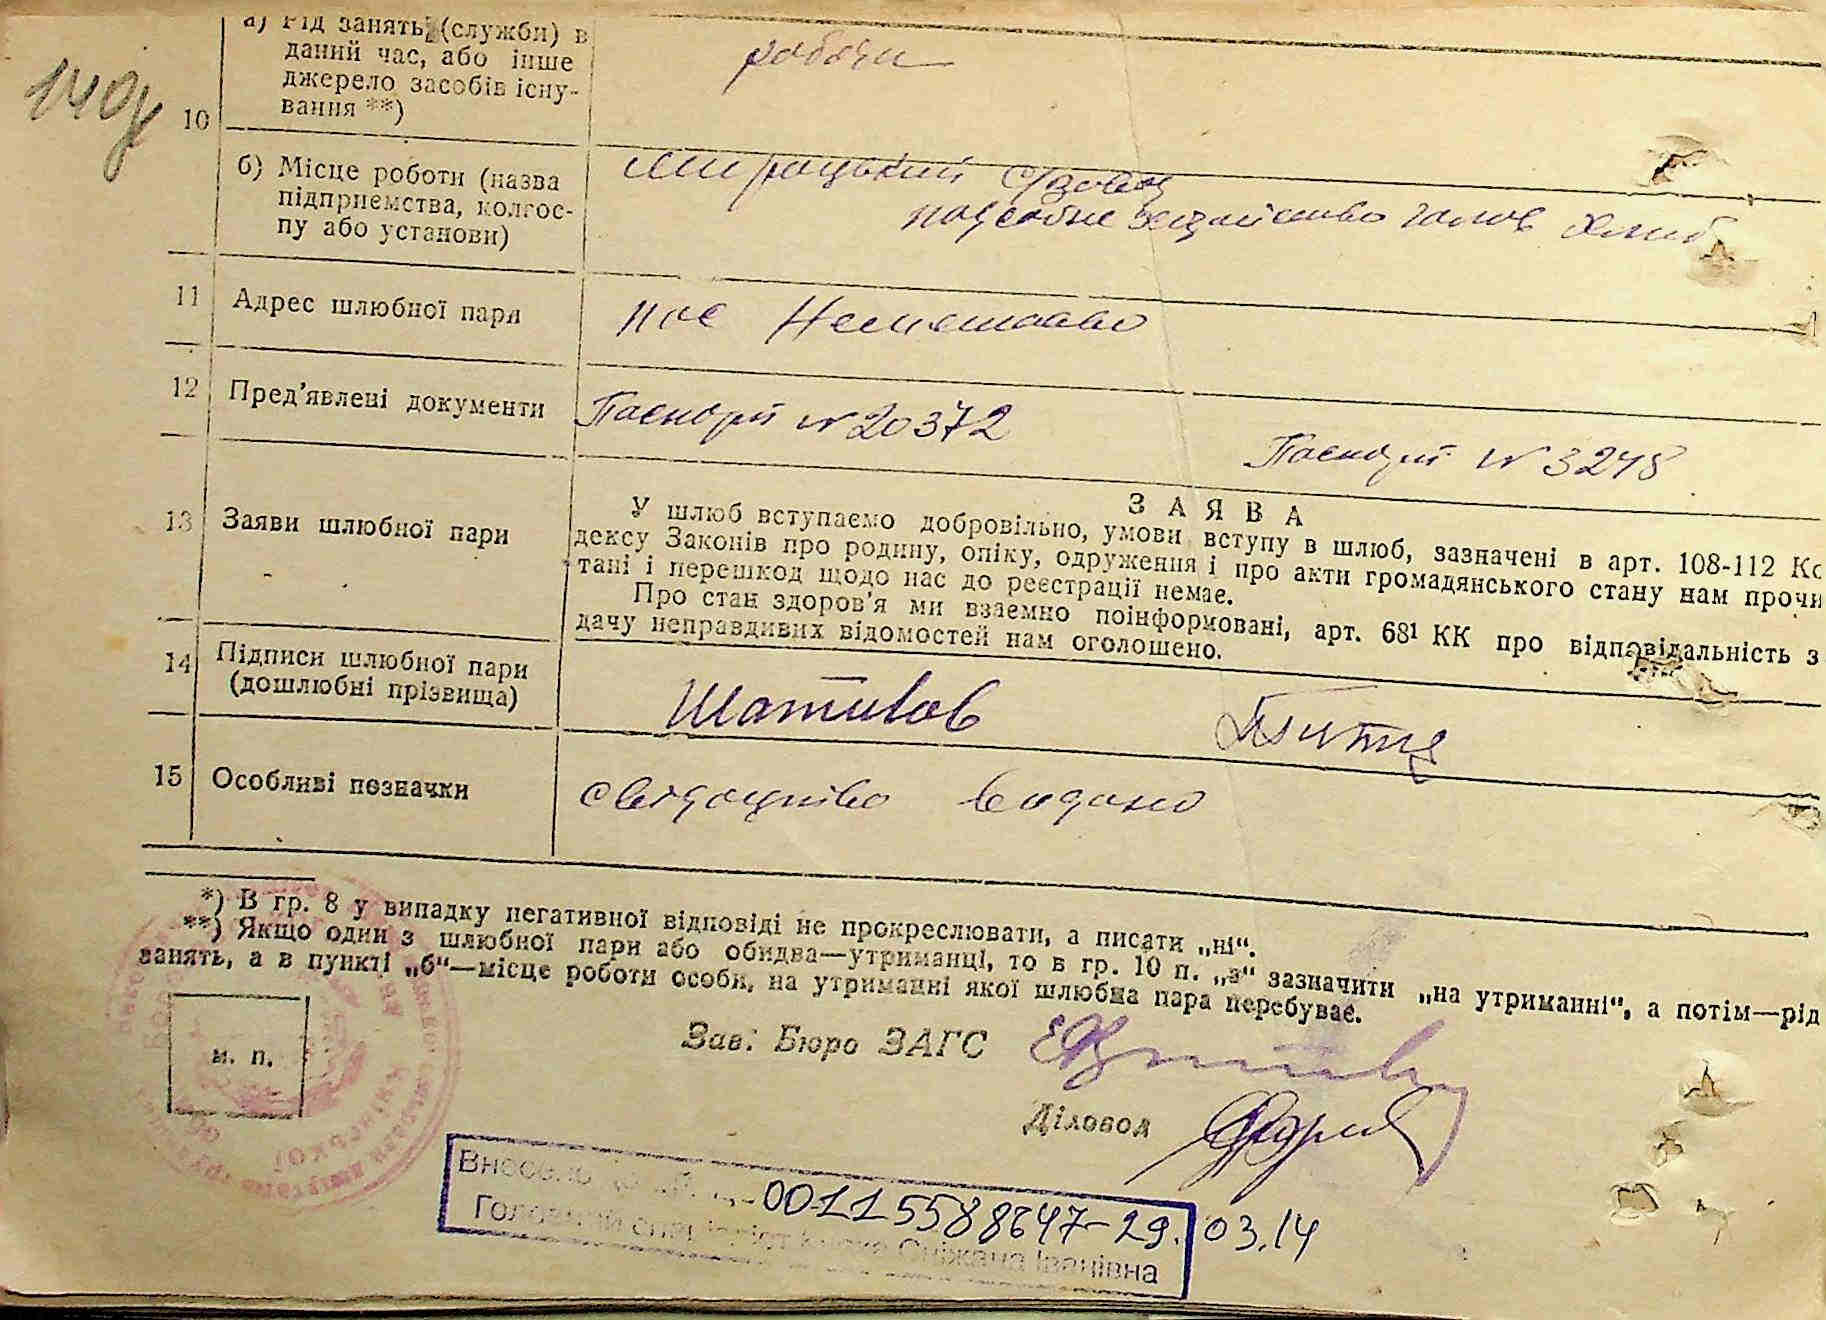 а) Рід занять (служби) в
даний час, або інше
джерело засобів існу-
вання **)
10
б) Місце роботи (назва
підприємства, колгос-
пу або установи)
Мироцький
11 Адрес шлюбної пари
пос
12 Пред'явлені документи
Паспорт N 20372
Паспорт N 3248
13 Заяви шлюбної пари
ЗАЯВА
У шлюб вступаємо добровільно, умови вступу в шлюб, зазначені в арт. 108-112 Ко
дексу Законів про родину, опіку, одруження і про акти громадянського стану нам прочи
тані і перешкод щодо нас до реєстрації немає.
Про стан здоров'я ми взаємно поінформовані, арт. 68¹ КК про відповідальність з
дачу неправдивих відомостей нам оголошено.
14 Підписи шлюбної пари
(дошлюбні прізвища)
Шатилов
15 Особливі позначки
свідоцтво видано
*) В гр. 8 у випадку негативної відповіді не прокреслювати, а писати „ні“.
**) Якщо один з шлюбної пари або обидва—утриманці, то в гр. 10 п. „а“ зазначити „на утриманні“, а потім—рід
занять, а в пункті „б“—місце роботи особи, на утриманні якої шлюбна пара перебуває.
м. п.
Зав. Бюро ЗАГС
Діловод
00115588647-29.03.14
Сніжана Іванівна